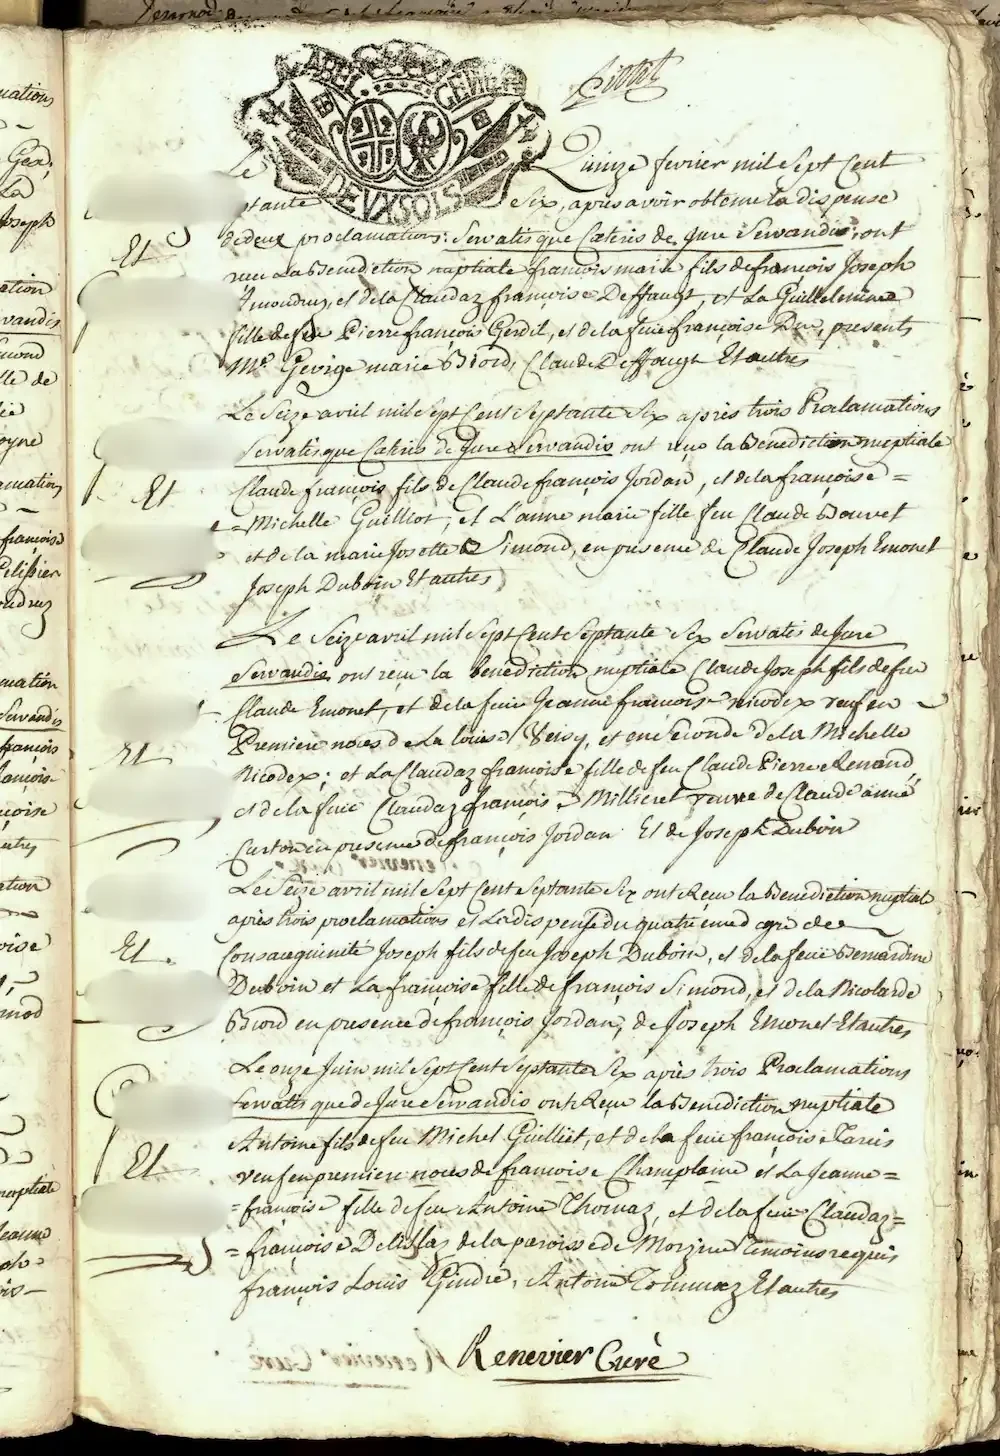 Le Quinze fevrier mil Sept Cent
ptante Six, apres avoir obtenu la dispense
DEVX SOLS
de deux proclamations: Servatisque Cæteris de Jure Servandis, ont
reçu La Benediction nuptiale françois marie fils de françois Joseph
Amoudruz, et de la Claudaz françoise Deffaugt, et La Guillelmine
fille de feu Pierre françois Gerdil, et de la feue françoise Duc, presents
Mre George marie Biord, Claude Deffaugt Et autres
Et
Le Seize avril mil Sept Cent Septante Six après trois Proclamations
Servatisque Cæteris de Jure Servandis ont reçu la Benediction nuptiale
Claude françois fils de Claude françois Jordan, et de la françoise =
Michelle Guilliot, et L'anne marie fille feu Claude Bouvet
et de la marie Josette Simond, en presence de Claude Joseph Emonet
Joseph Duboin Et autres
Et
Le Seize avril mil Sept Cent Septante Six Servatis de Jure
Servandis ont reçu la benediction nuptiale Claude Joseph fils de feu
Claude Emonet, et de la feue Jeanne françoise nicodex veuf en
Premiere noces de La louise Veisy, et en Seconde de La Michelle
Nicodex; et La Claudaz françoise fille de feu Claude Pierre Renand
et de la feue Claudaz françoise Millieret veuve de Claude aimé
Curton en presence de françois Jordan Et de Joseph Duboin
Et
Le Seize avril mil Sept Cent Septante Six ont Reçu la Benediction nuptiale
après trois proclamations et La dispense du quatrieme degré de
Consanguinité Joseph fils de feu Joseph Duboin, et de la feue Bernardine
Duboin et La françoise fille de françois Simond, et de la Nicolarde
Biord en presence de françois Jordan, de Joseph Emonet Et autres
Et
Le onze Juin mil Sept Cent Septante Six après trois Proclamations
Servatisque de Jure Servandis ont Reçu la Benediction nuptiale
Antoine fils de feu Michel Guilliet, et de la feue françoise Tavis
veuf en premiere noces de françoise Champlaine et La Jeanne =
= françoise fille de feu Antoine Thomaz, et de la feue Claudaz =
= françoise Delisflaz de la paroisse de Morzine Temoins requis
françois Louis Gindre, Antoine Tommaz Et autres
Et
Renevier Curé